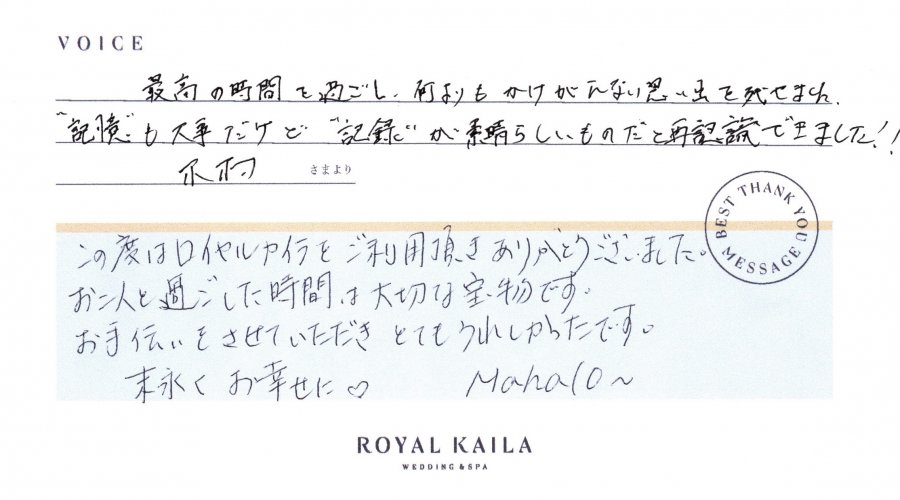 VOICE
最高の時間を過ごし、何よりもかけがえない思い出を残せました。
"記憶"も大事だけど"記録"が素晴らしいものだと再認識できました!!
木村 さまより
BEST THANK YOU MESSAGE
この度はロイヤルカイラをご利用頂きありがとうございました。
お二人と過ごした時間は大切な宝物です。
お手伝いをさせていただきとてもうれしかったです。
末永くお幸せに♡ Mahalo~
ROYAL KAILA
WEDDING & SPA